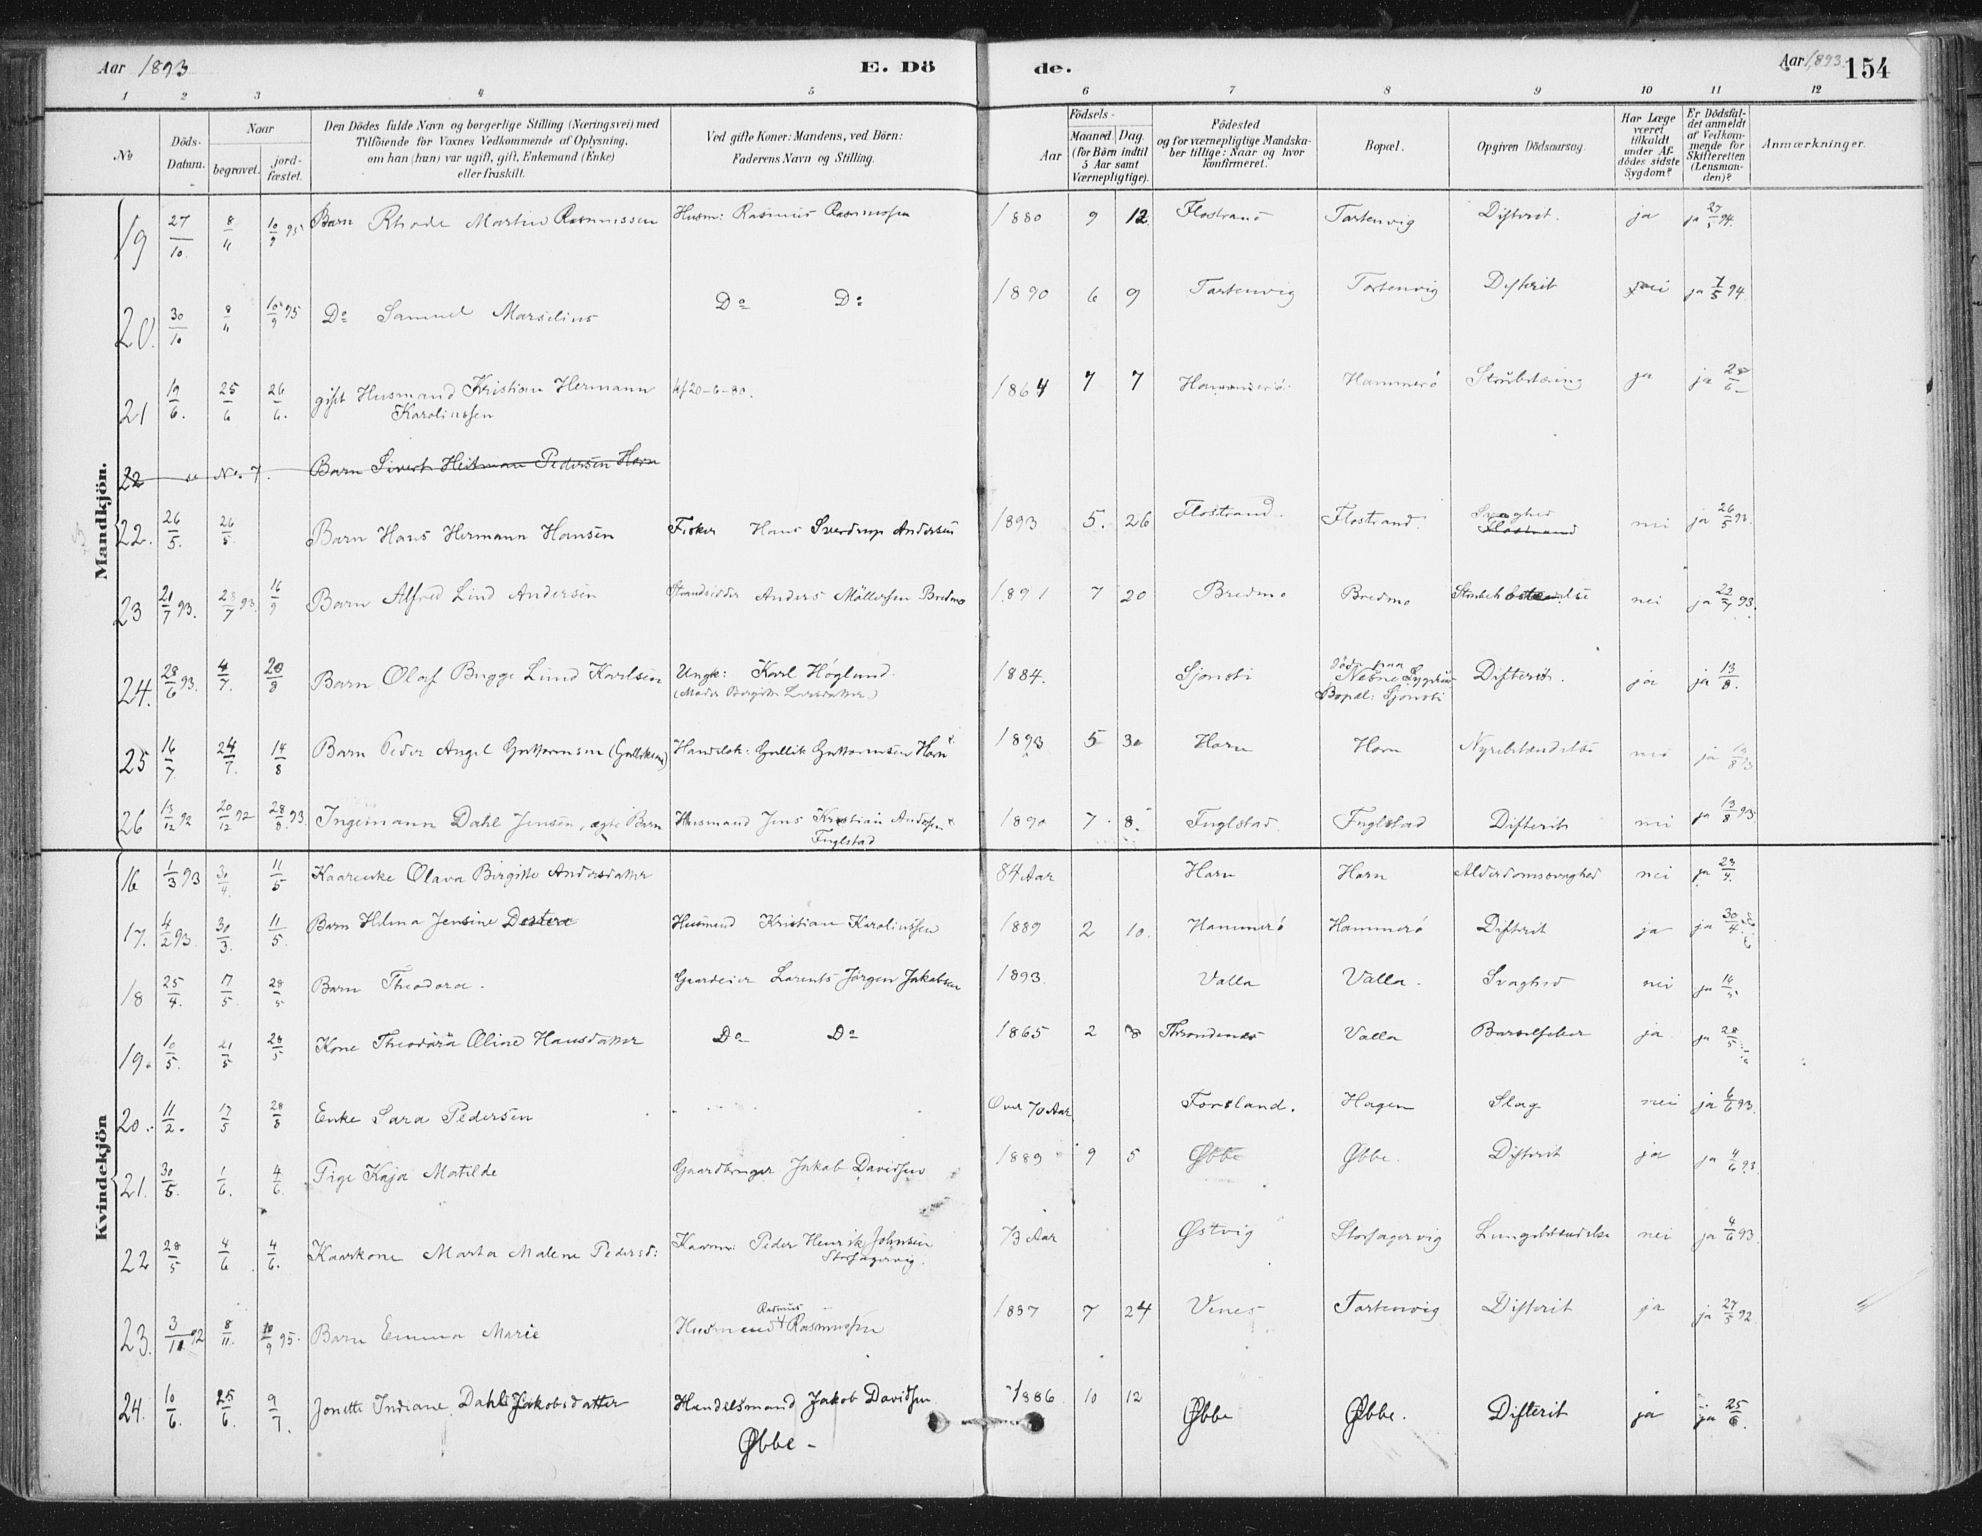 Aar 1893
E. Dö
de.
Aar 1893.
154
1 2 3 4 5 6 7 8 9 10 11 12
No
Döds-Datum.
Naar
begravet.
jord-fæstet.
Den Dödes fulde Navn og borgerlige Stilling (Næringsvei) med
Tilföiende for Voxnes Vedkommende af Oplysning,
om han (hun) var ugift, gift, Enkemand (Enke)
eller fraskilt.
Ved gifte Koner: Mandens, ved Börn:
Faderens Navn og Stilling.
Födsels-
Aar
Maaned. Dag.
(for Börn indtil
5 Aar samt
Værnepligtige).
Födested
og for værnepligtige Mandska-
ber tillige: Naar og hvor
konfirmeret.
Bopæl.
Opgiven Dödsaarsag.
Har Læge
været
tilkaldt
under Af-
dödes sidste
Sygdom?
Er Dödsfal-
det anmeldt
af Vedkom-
mende for
Skifteretten
(Lensman-
den)?
Anmærkninger.
Mandkjön.
19 27/10. 8/11 10/9 95 Barn Rhode Martin Rasmussen Husm: Rasmus Rasmussen 1880 9 12. Flostrand Tortenvig Difterit. ja ja 27/5 94.
20. 30/10 8/11 10/9 95 Do Samuel Marselius Do Do 1890 6 9 Tortenvig Tortenvig Difterit nei ja 7/5 94.
21 19/6. 25/6 26/6. gift Husmand Kristian Hermann kf 20-6-80. 1864 7 7 Hammerø Hammerø Strubetæring ja ja 28/6
Karolinssen
22 " No. 7. Barn Sivert Heitman Pedersen Horn
22. 26/5. 26/5. Barn Hans Hermann Hansen Fisker Hans Sverdrup Andersen 1893 5. 26 Flostrand. Flostrand. Svaghed nei ja 26/5 93.
Flostrand
23 21/7 93. 28/7 93. 16/9 Barn Alfred Lind Andersen Strandsidder Anders Möllersen Bredmo 1891 7 20 Bredmo Bredmo nei ja 22/7 93.
24. 28/6 93. 4/7. 20/8 Barn Olaf Bugge Lund Karlsen Ungk: Karl Höglund. 1884. Sjonsti Död paa Difterit. ja ja 13/8.
(Moder Birgitte Larsdatter) Nesne Sygehus
Bopæl: Sjonsti
25 16/7. 24/7. 14/8 Barn Peder Angel Guttormsen (Gulliksen) Handelsk: Gullik Guttormsen Horn 1893 5 30 Horn Horn Nyrebetændelse nei ja 13/8 93
26 13/12 92 20/12 92 28/8. 93. Ingemann Dahl Jensen, ægte Barn Husmand Jens Kristian Andersen 1890 7. 8. Fuglstad. Fuglstad Difterit nei ja 13/8 93
Fuglstad
Kvindekjön
16 1/3 93 30/4. 11/5 Kaarenke Olava Birgitte Andersdatter 84 Aar Horn Horn Alderdomssvaghed nei ja 23/4.
17. 4/2 93. 30/3. 11/5. Barn Hilma Jensine Desideria Husmand Kristian Karolinssen 1889 2 10. Hammerø Hammerø Difterit ja ja 30/4.
18 25/4. 17/5. 28/5 Barn Theodora. Gaardeier Lorents Jörgen Jakobsen 1893. Valla Valla. Svaghed nei ja 14/5
19. 10/5. 21/5 28/5 Kone Theodora Oline Hansdatter Do Do 1865 2 8 Throndenes Valla Barselfeber ja ja 28/5
20. 11/2. 17/5 28/8 Enke Sara Pedersen Over 70 Aar Forsland. Hagen Slag nei ja 6/6 93.
21. 30/5. 1/6. 4/6. Pige Kaja Matilde Gaardbruger Jakob Davidsen 1889 9 5 Øbbe Øbbe. Difterit ja ja 4/6 93
22 28/5 4/6 4/6. Kaarkone Marta Malene Pedersd: Kaarm: Peder Henrik Johnsen 73 Aar Østvig Storfagervig Lungebetændelse nei ja 4/6 93
Storfagervig.
23. 3/11 92 8/11. 10/9 95. Barn Emma Marie Husmand Rasmus Rasmussen 1887 7 24 Venes Tortenvig Difterit ja ja 27/5 92.
24. 10/6. 25/6. 9/7. Jonette Indiane Dahl Jakobsdatter Handelsmand Jakob Davidsen 1886 10 12 Øbbe Øbbe. Difterit ja ja 25/6
Øbbe